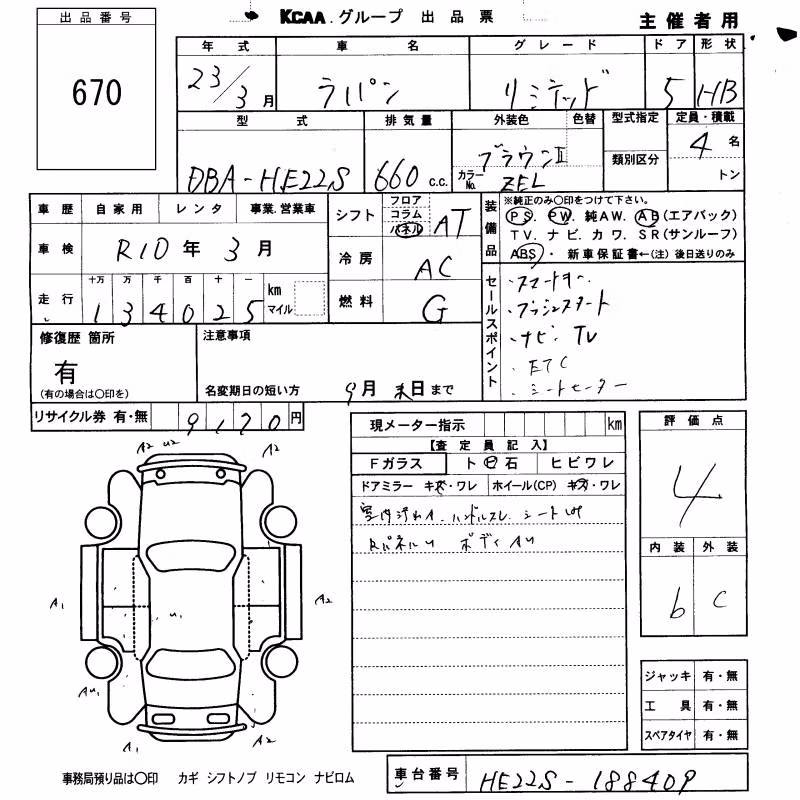 出品番号
670
KCAA.グループ 出品票
主催者用
年式 車名 グレード ドア 形状
23/3月 ラパン リミテッド 5 HB
型式 排気量 外装色 色替 型式指定 定員・積載
DBA-HE22S 660 c.c. ブラウンII
カラーNo. ZEL
類別区分
4名
トン
車歴 自家用 レンタ 事業.営業車
車検 R10年 3月
走行 十万 万 千 百 十 一 km マイル
1 3 4 0 2 5
シフト フロア コラム パネル AT
冷房 AC
燃料 G
装備品
※純正のみ〇印をつけて下さい。
PS. PW. 純AW. AB(エアバック)
TV. ナビ. カワ. SR(サンルーフ)
ABS・ 新車保証書←(注)後日送りのみ
セールスポイント
・スマートキー
・プッシュスタート
・ナビ・TV
・ETC
・シートヒーター
修復歴 箇所
有
(有の場合は〇印を)
注意事項
名変期日の短い方 9月末日まで
リサイクル券 有・無 9170円
現メーター指示 km
【査定員記入】
Fガラス ト ビ 石 ヒビワレ
ドアミラー キズ・ワレ ホイール(CP) キズ・ワレ
室内汚れ ハンドルスレ シート
Rパネルu ボディAu
評価点
4
内装 外装
b C
ジャッキ 有・無
工具 有・無
スペアタイヤ 有・無
A2 u2 A2
A1 u1 A2
Au1
A1 A2
事務局預り品は〇印 カギ シフトノブ リモコン ナビロム
車台番号 HE22S-188409